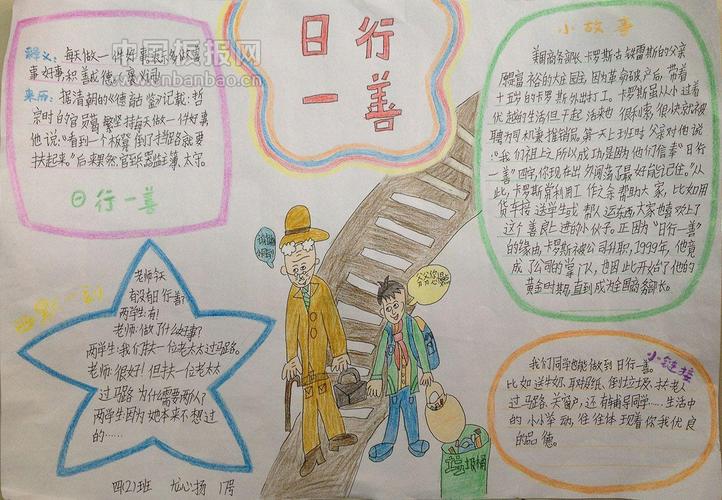 日行
一善
释义：每天做一件好事
事好事积善成德
来历：据清朝的《德育古鉴》记载：哲
宗时的官员葛繁坚持每天做一件好事
他说："看到一个板凳倒了挡路就要
扶起来。"后来果然官至监主簿、太守。
日行一善
小故事
美国商务部长卡罗斯古铁雷斯的父亲
是富裕的大庄园主，因革命破产后，带着
十五岁的卡罗斯外出打工。卡罗斯虽从小过着
优越的生活但干起活来也很利索，很快就被
聘为司机兼推销员。第一天上班时父亲对他说
："我们祖上之所以成功是因为他们信奉"日行
一善"四字，你现在出外闯荡了最好能记住。"从
此，卡罗斯常利用工作之余帮助大家，比如用
货车接送学生或帮人运东西大家也喜欢上了
这个善良上进的小伙子。正因为"日行一善"
的缘由，卡罗斯被公司升职，1999年，他竟
成了公司的掌门人，也因此开始了他的
黄金时期，直到成为全国商务部长。
幽默一刻
老师：今天
有没有日行善？
两学生：有！
老师：做了什么好事？
两学生：我们扶一位老太太过马路。
老师：很好！但扶一老太太
过马路为什么需要两人？
两学生：因为她本来不想过
的……
小链接
我们同学也能做到日行一善。
比如送牛奶、取报纸、倒垃圾、扶老人
过马路、关窗户，还有辅导同学……生活中
的小小举动，往往体现着你我优良
的品德。
垃圾桶
四(2)班
中国板报网
www.cnbanbao.cn